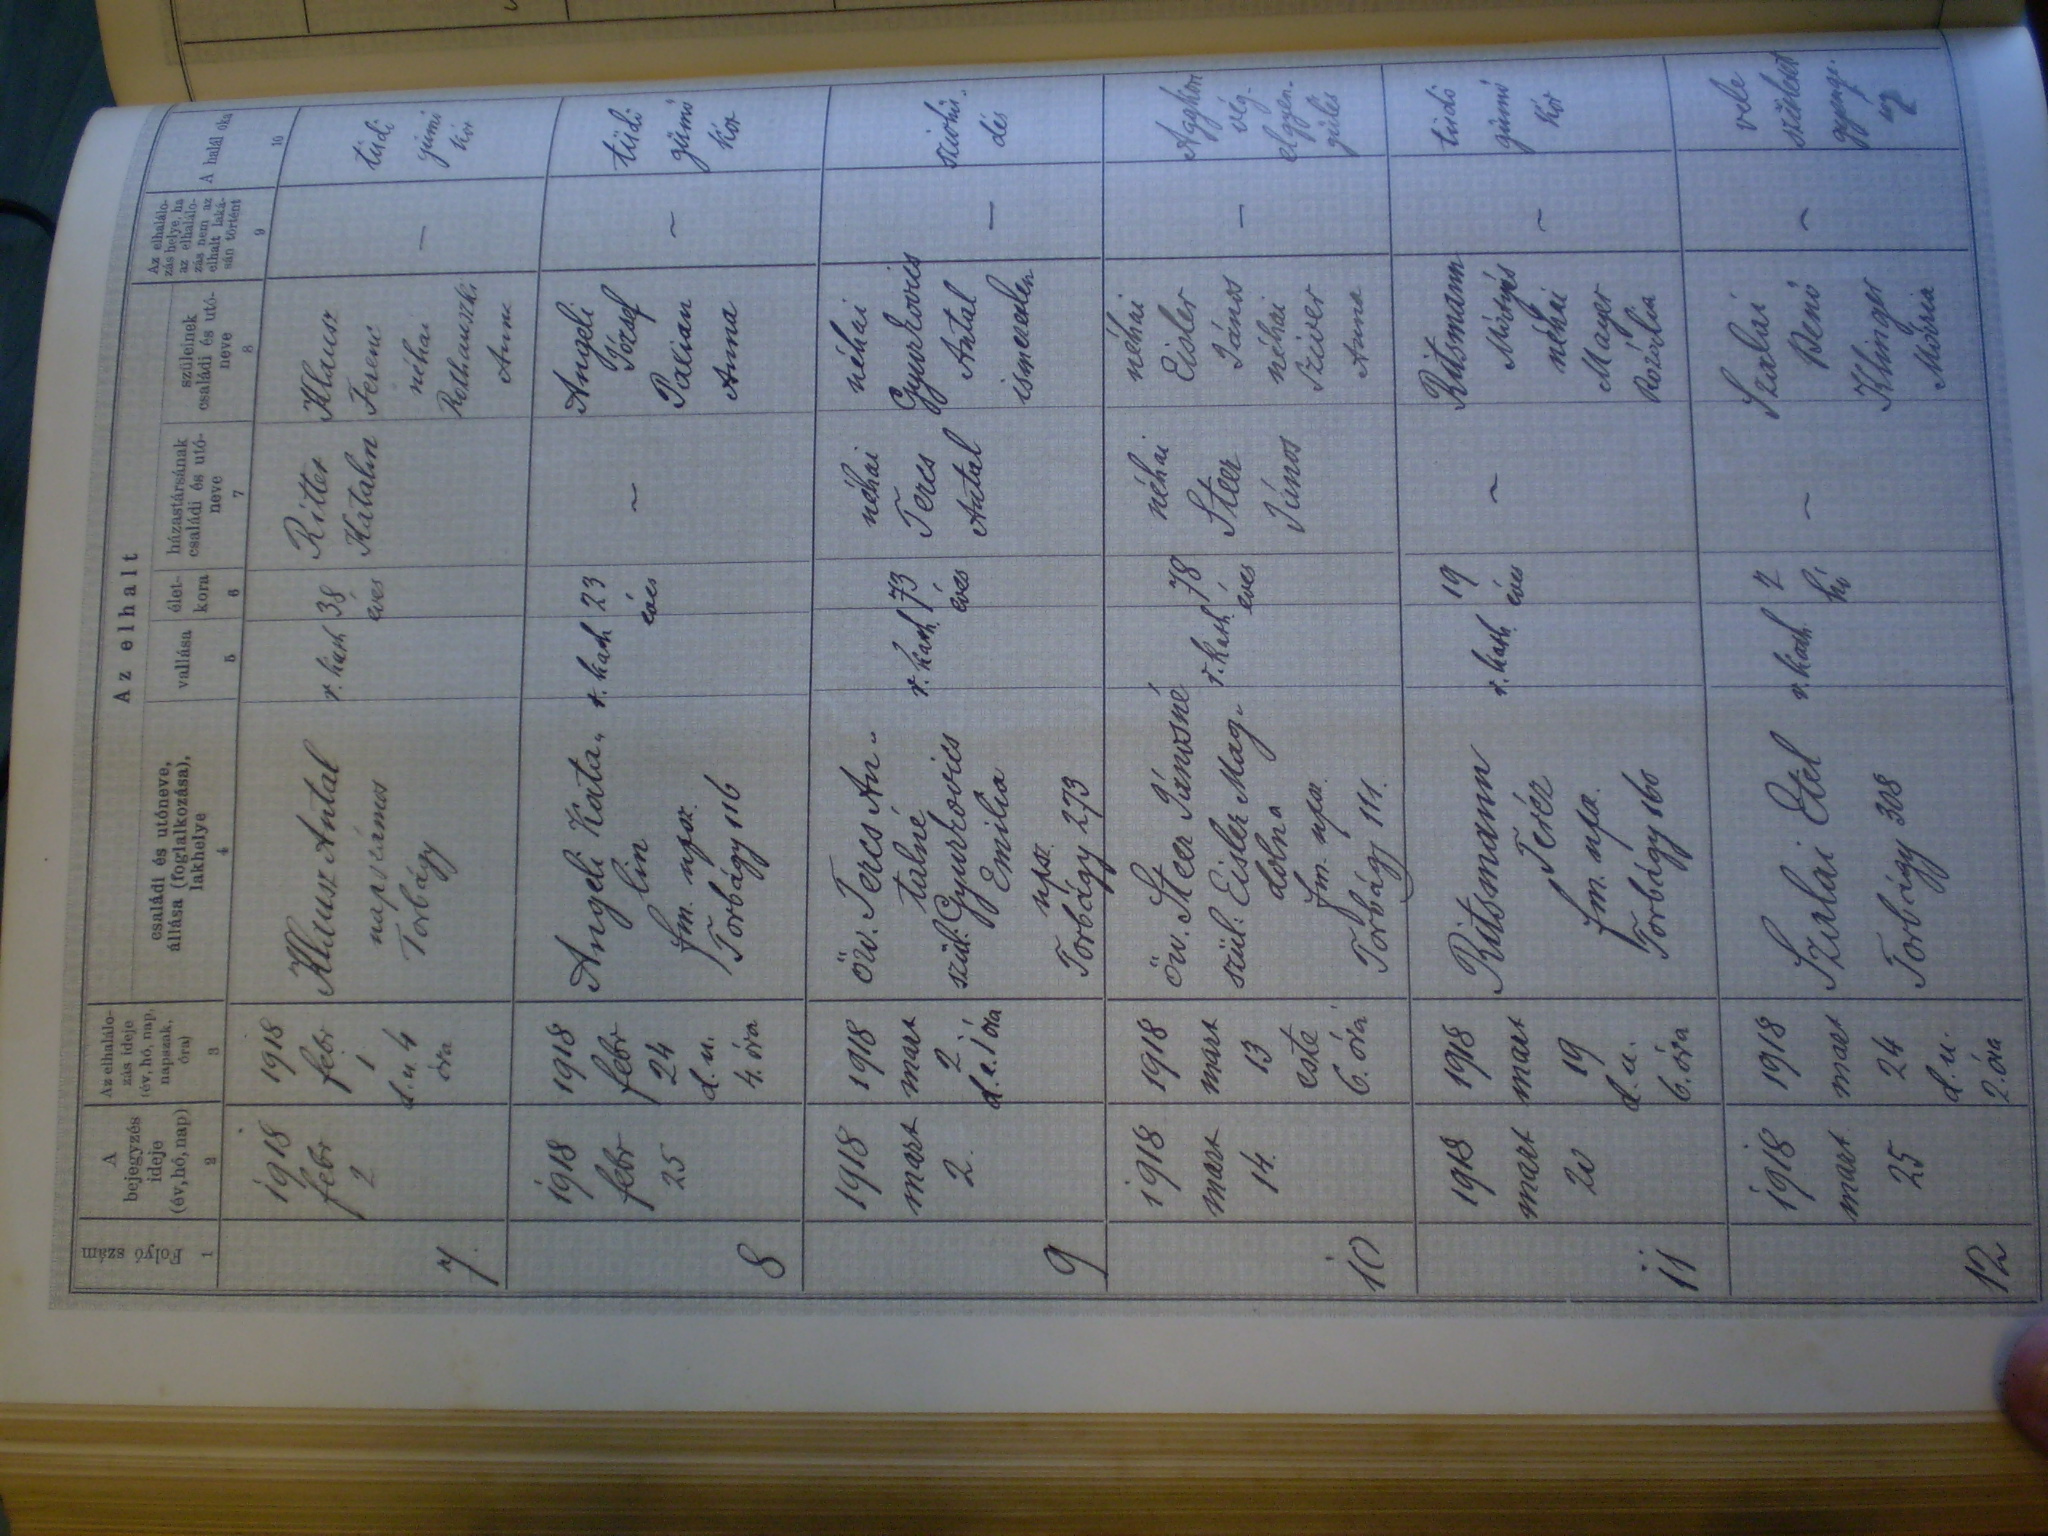 Az elhalt
Folyó szám
A bejegyzés ideje (év, hó, nap)
Az elhalálo-
zás ideje
(év, hó, nap,
napszak,
óra)
családi és utóneve,
állása (foglalkozása),
lakhelye
vallása
élet-
kora
házastársának
családi és utó-
neve
szüleinek
családi és utó-
neve
Az elhalálo-
zás helye, ha
az elhalálo-
zás nem az
elhalt laká-
sán történt
A halál oka
1
2
3
4
5
6
7
8
9
10
7.
1918
febr
2
1918
febr
1
d.u. 4
óra
Klausz Antal
napszámos
Torbágy
r. kath
38
éves
Ritter
Katalin
Klausz
Ferenc
néhai
Anna
—
tüdő
gümő
kór
8
1918
febr
25
1918
febr
24
d.u.
4. óra
Angeli Kata„
lin
fm. npsz.
Torbágy 116
r. kath
23
éves
~
Angeli
József
Paxian
Anna
~
tüdő
gümő
kór
9
1918
mart
2.
1918
mart
2
d.e. 1 óra
öw. Tercs An„
talné
szül: Gyurkovics
Emilia
npsz.
Torbágy 273
r. kath
73
éves
néhai
Tercs
Antal
néhai
Gyurkovics
Antal
ismeretlen
—
szívhű„
dés
10
1918
mart
14.
1918
mart
13
este
6. óra
öw. Steer Jánosné
szül: Eisler Mag„
dolna
fm. npsz.
Torbágy 111.
r. kath
78
éves
néhai
Steer
János
néhai
Eisler
János
néhai
Sziver
Anna
—
Aggkóri
vég-
elgyen-
gülés
11
1918
mart
20
1918
mart
19
d.u.
6. óra
Ritsmann
Teréz
fm. npsz.
Torbágy 160
r. kath
19
éves
~
Ritsmann
Mátyás
néhai
Mayer
Rozália
~
tüdő
gümő
kór
12
1918
mart
25
1918
mart
24
d.u.
2. óra
Szalai Etel
Torbágy 308
r. kath
2
hó
~
Szalai
Klinger
Mária
~
vele
született
gyenge-
ség